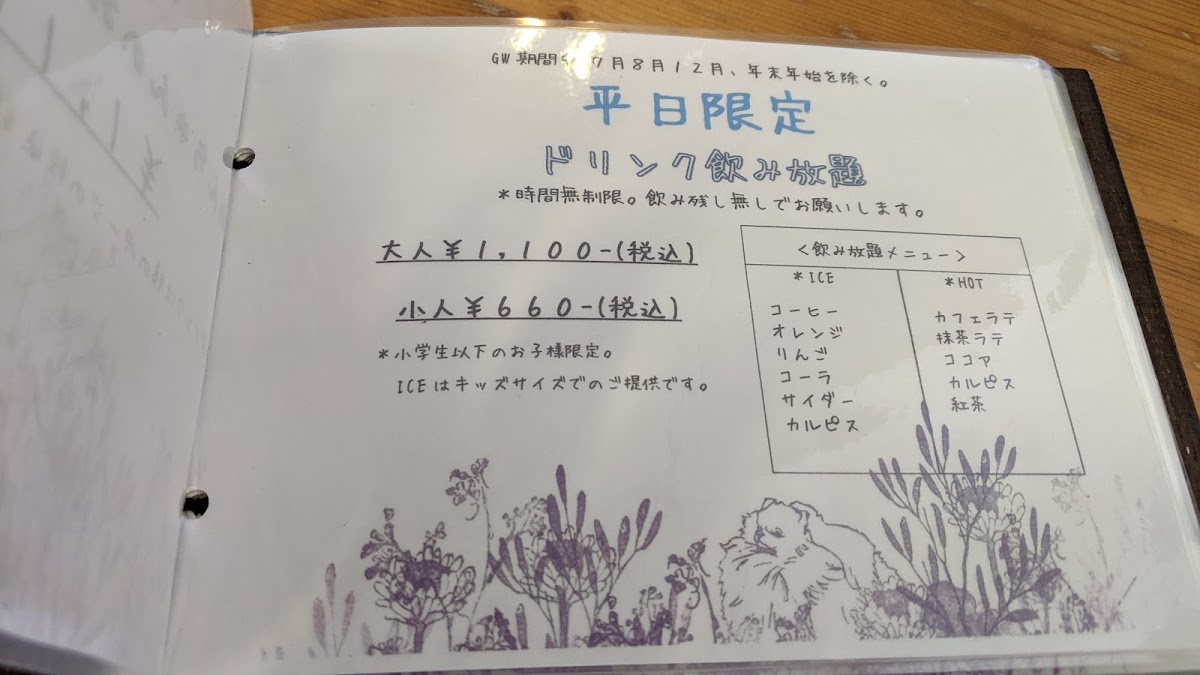 GW期間 7月8月12月、年末年始を除く。
平日限定
ドリンク飲み放題
*時間無制限。飲み残し無しでお願いします。
大人¥1,100-(税込)
小人¥660-(税込)
*小学生以下のお子様限定。
ICEはキッズサイズでのご提供です。
<飲み放題メニュー>
*ICE
コーヒー
オレンジ
りんご
コーラ
サイダー
カルピス
*HOT
カフェラテ
抹茶ラテ
ココア
カルピス
紅茶